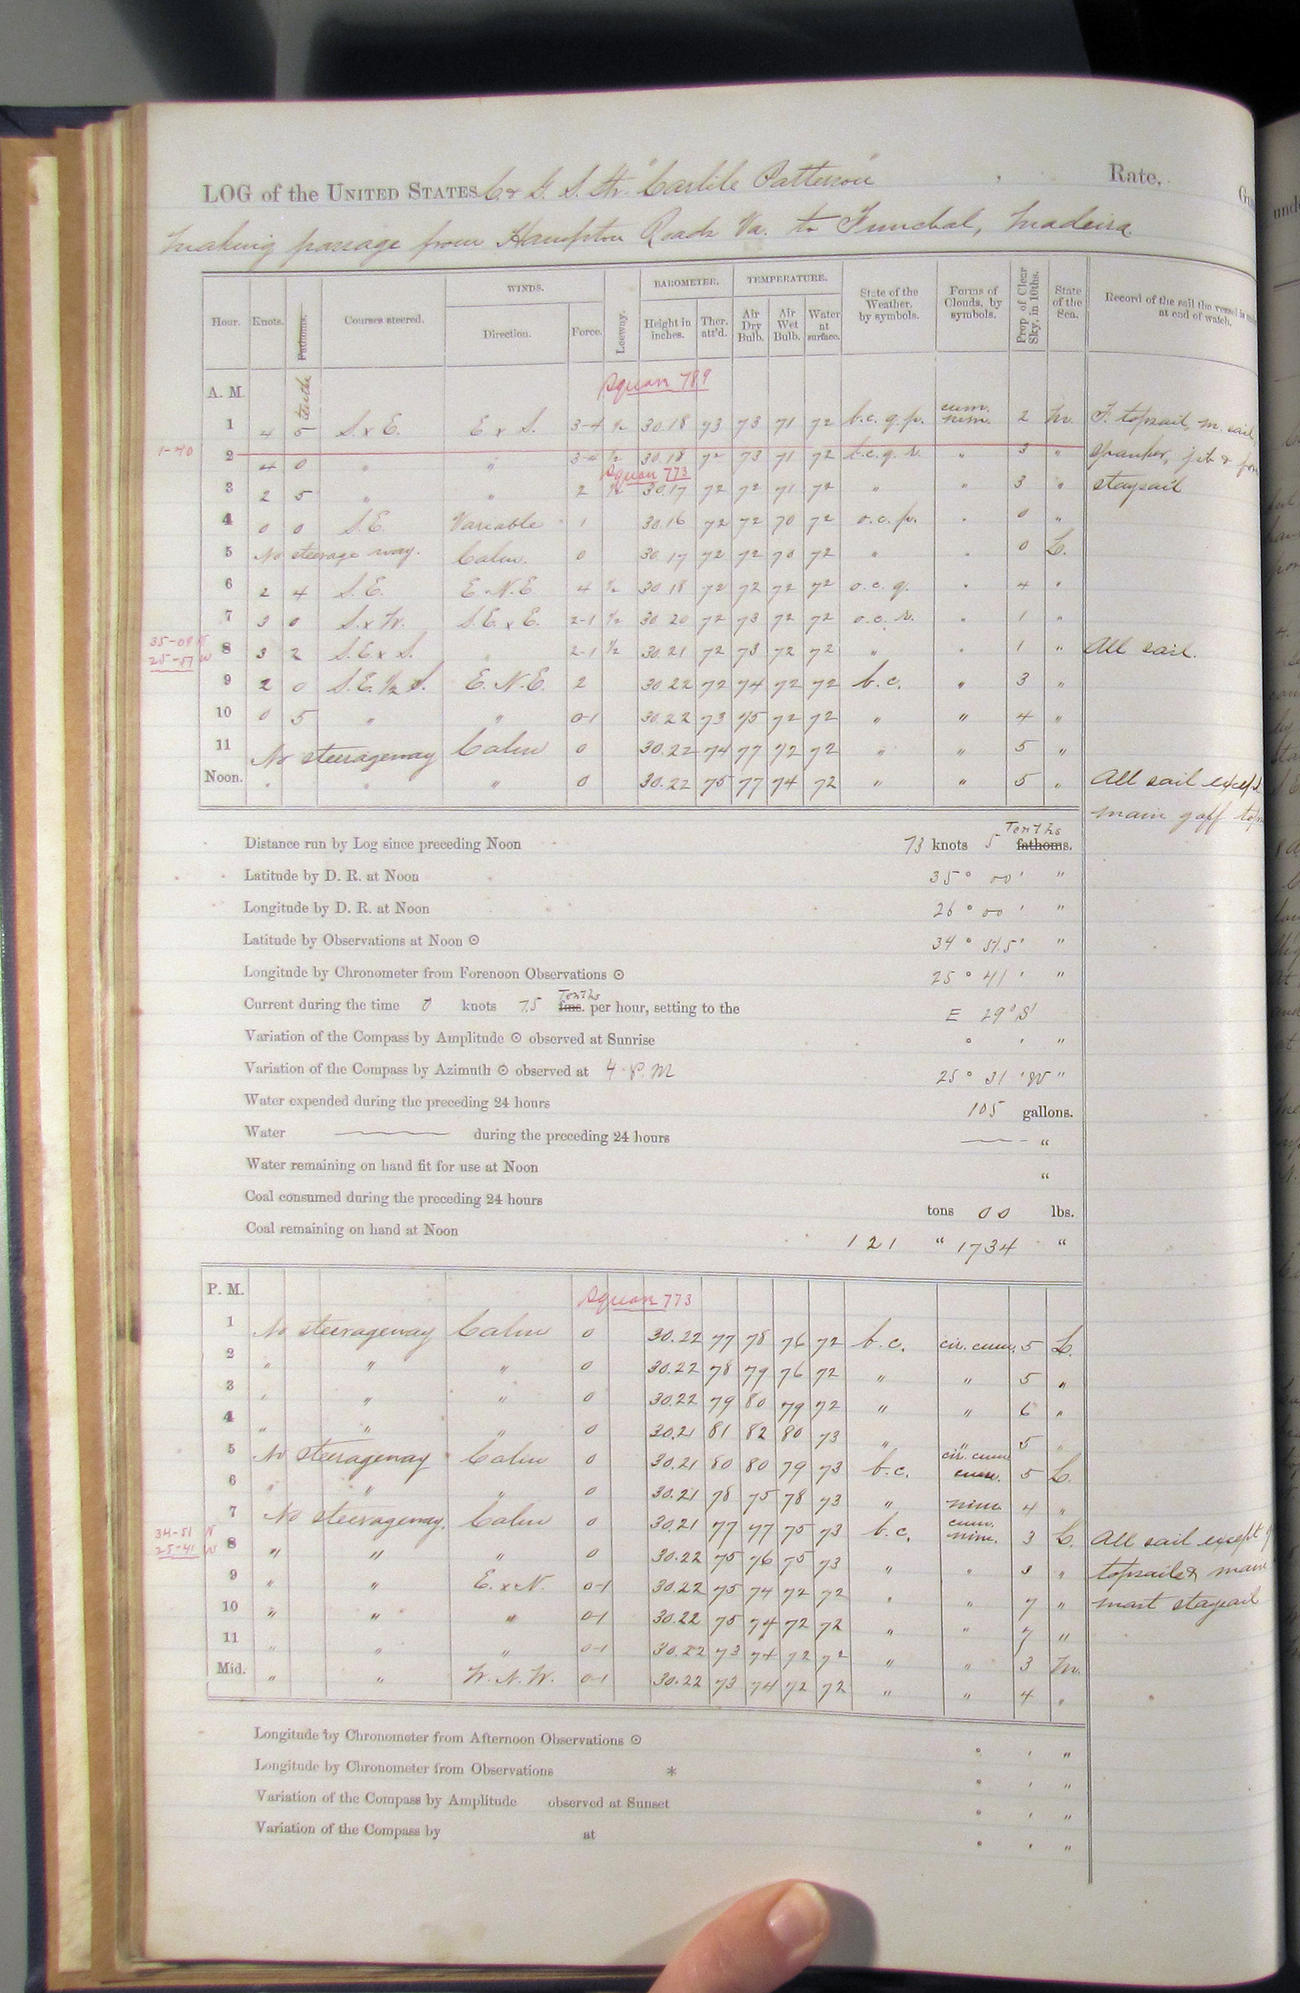 LOG of the UNITED STATES C & G. S. Str. "Carlile Patterson" Rate,
Making passage from Hampton Roads Va. to Funchal, Madeira
Hour. Knots. Fathoms. tenths Courses steered. WINDS. Direction. Force. Leeway. BAROMETER. Height in inches. Ther. att'd. TEMPERATURE. Air Dry Bulb. Air Wet Bulb. Water at surface. State of the Weather, by symbols. Forms of Clouds, by symbols. Prop. of Clear Sky, in 10ths. State of the Sea. Record of the sail the vessel is at end of watch.
A. M. Squan 789
1 4 5 S. x E. E x S. 3-4 ½ 30.18 73 73 71 72 b.c. q. p. cum. nim. 2 M. F. topsail, m. sail,
1-40
2 4 0 " " 3-4 ½ 30.18 72 73 71 72 b.c. q. r. " 3 " spanker, jib &
Squan 773
3 2 5 " " 2 ½ 30.17 72 72 71 72 " " 3 " staysail
4 0 0 S.E. Variable 1 30.16 72 72 70 72 o.c. p. " 0 "
5 No steerage way. Calm. 0 30.17 72 72 70 72 " " 0 L.
6 2 4 S.E. E.N.E 4 ½ 30.18 72 72 72 72 o.c. q. " 4 "
7 3 0 S. x W. S.E. x E. 2-1 ½ 30 20 72 73 72 72 o.c. r. " 1 "
35-08 N
25-57 W
8 3 2 S.E. x S. " 2-1 ½ 30.21 72 73 72 72 " " 1 " All sail.
9 2 0 S.E. ½ S. E.N.E. 2 30.22 72 74 72 72 b.c. " 3 "
10 0 5 " " 0-1 30.22 73 75 72 72 " " 4 "
11 No steerageway Calm 0 30.22 74 77 72 72 " " 5 "
Noon. " " " 0 30.22 75 77 74 72 " " 5 " All sail except
main gaff
Distance run by Log since preceding Noon 73 knots 5 Tenths fathoms.
Latitude by D. R. at Noon 35° 00' "
Longitude by D. R. at Noon 26° 00' "
Latitude by Observations at Noon ⊙ 34° 51.5' "
Longitude by Chronometer from Forenoon Observations ⊙ 25° 41' "
Current during the time 0 knots 75 Tenths fms. per hour, setting to the E 29° S'
Variation of the Compass by Amplitude ⊙ observed at Sunrise ° ' "
Variation of the Compass by Azimuth ⊙ observed at 4 P.M 25° 31' W "
Water expended during the preceding 24 hours 105 gallons.
Water during the preceding 24 hours "
Water remaining on hand fit for use at Noon "
Coal consumed during the preceding 24 hours tons 00 lbs.
Coal remaining on hand at Noon 121 " 1734 "
P. M. Squan 773
1 No steerageway Calm 0 30.22 77 78 76 72 b.c. cir. cum. 5 L.
2 " " " 0 30.22 78 79 76 72 " " 5 "
3 " " " 0 30.22 79 80 79 72 " " 6 "
4 " " " 0 30.21 81 82 80 73 " " 5 "
5 No steerageway Calm 0 30.21 80 80 79 73 b.c. cir. cum. cum. 5 L.
6 " " " 0 30.21 78 75 78 73 " nim. 4 "
7 No steerageway. Calm 0 30.21 77 77 75 73 b.c. cum. nim. 3 L. All sail except
34-51 N
25-41 W
8 " " " 0 30.22 75 76 75 73 " " 3 " topsail & main
9 " " E. x N. 0-1 30.22 75 74 72 72 " " 7 " mast staysail
10 " " " 0-1 30.22 75 74 72 72 " " 7 "
11 " " " 0-1 30.22 73 74 72 72 " " 3 M.
Mid. " " W.N.W. 0-1 30.22 73 74 72 72 " " 4 "
Longitude by Chronometer from Afternoon Observations ⊙ ° ' "
Longitude by Chronometer from Observations * ° ' "
Variation of the Compass by Amplitude observed at Sunset ° ' "
Variation of the Compass by at ° ' "